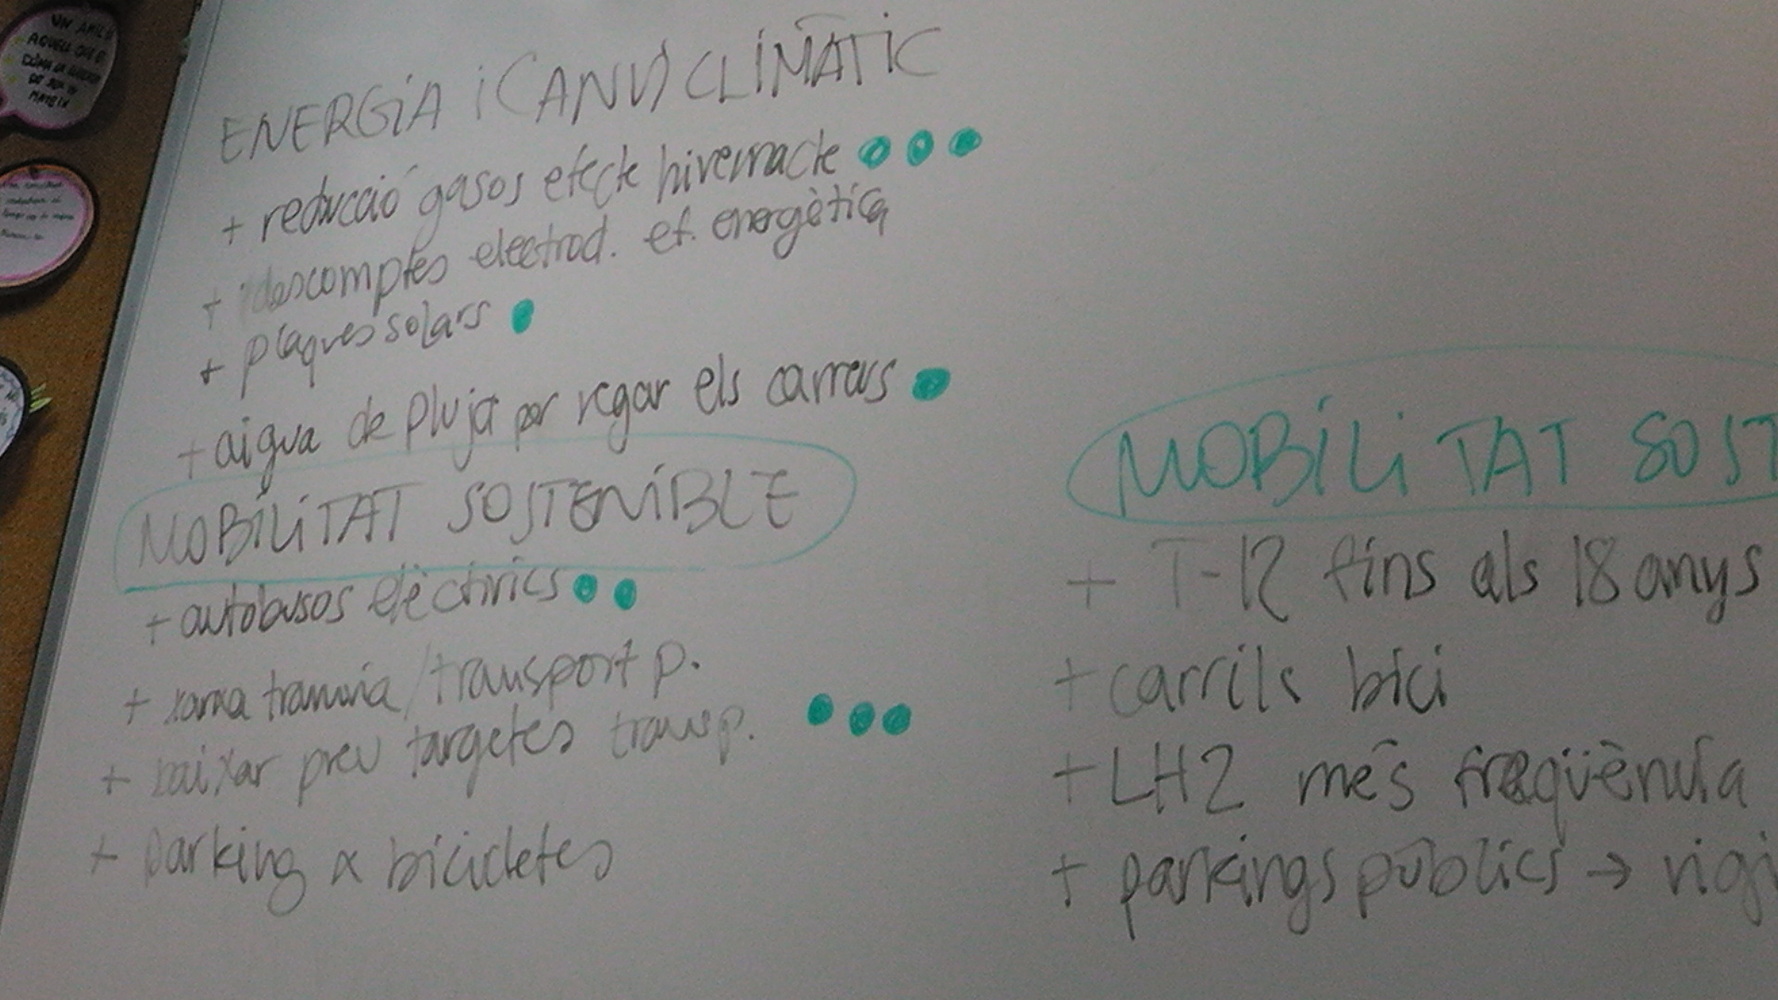 UN AMIC
AQUELL QUE
ENERGIA i CANVI CLIMÀTIC
+ reducció gasos efecte hivernacle
+ descomptes electrod. ef. energètica
+ plaques solars
+ aigua de pluja per regar els carrers
MOBILITAT SOSTENIBLE
+ autobusos elèctrics
+ xarxa tramvia / transport p.
+ baixar preu targetes transp.
+ parking x bicicletes
MOBILITAT SOST
+ T-12 fins als 18 anys
+ carrils bici
+ LH2 més freqüència
+ parkings públics → vigi